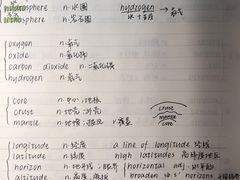 hydrosphere n.水圈 hydrogen → 氢气
lithosphere n.岩石圈
oxygen n.氧气
oxide n.氧化物
carbon dioxide n.二氧化碳
hydrogen n.氢气
core n.中心,地核
crust n.地壳,外壳
mantle n.地幔
crust
mantle
core
longitude n.经度 a line of longitude 经线
latitude n.纬度 high latitudes 高纬度地区
horizon n.地平线,眼界 horizontal adj.水平的
altitude n.高度,海拔 broaden sb's' horizons